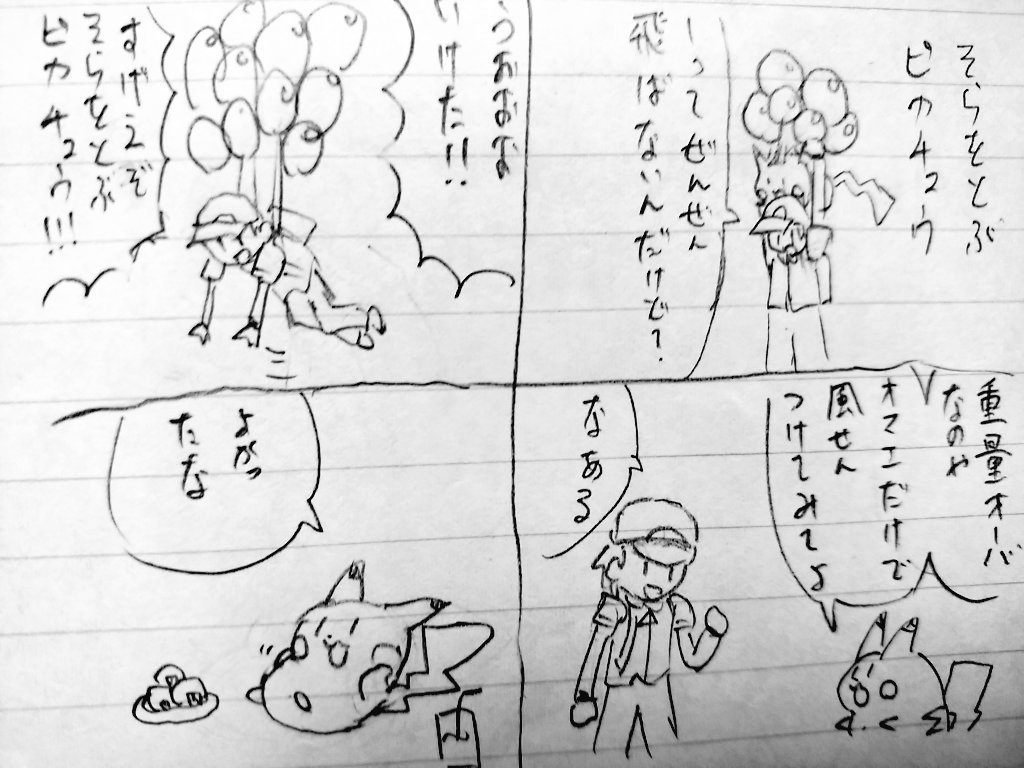 そらをとぶ
ピカチュウ
ーってぜんぜん
飛ばないんだけど?
重量オーバ
なのや
オマエだけで
風せん
つけてみてよ
なある
うおおお
いけた!!
すげえぞ
そらをとぶ
ピカチュウ!!!
よかっ
たな